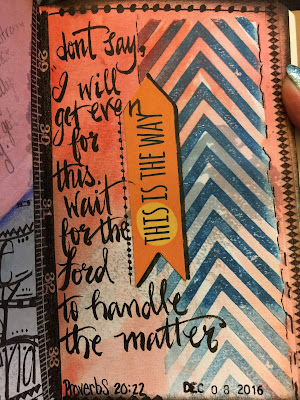 "don't say,
"I will
get even
for
this."
Wait
for the
Lord
to handle
the matter"
THIS IS THE WAY
Proverbs 20:22
DEC 08 2016
29
30
31
32
33